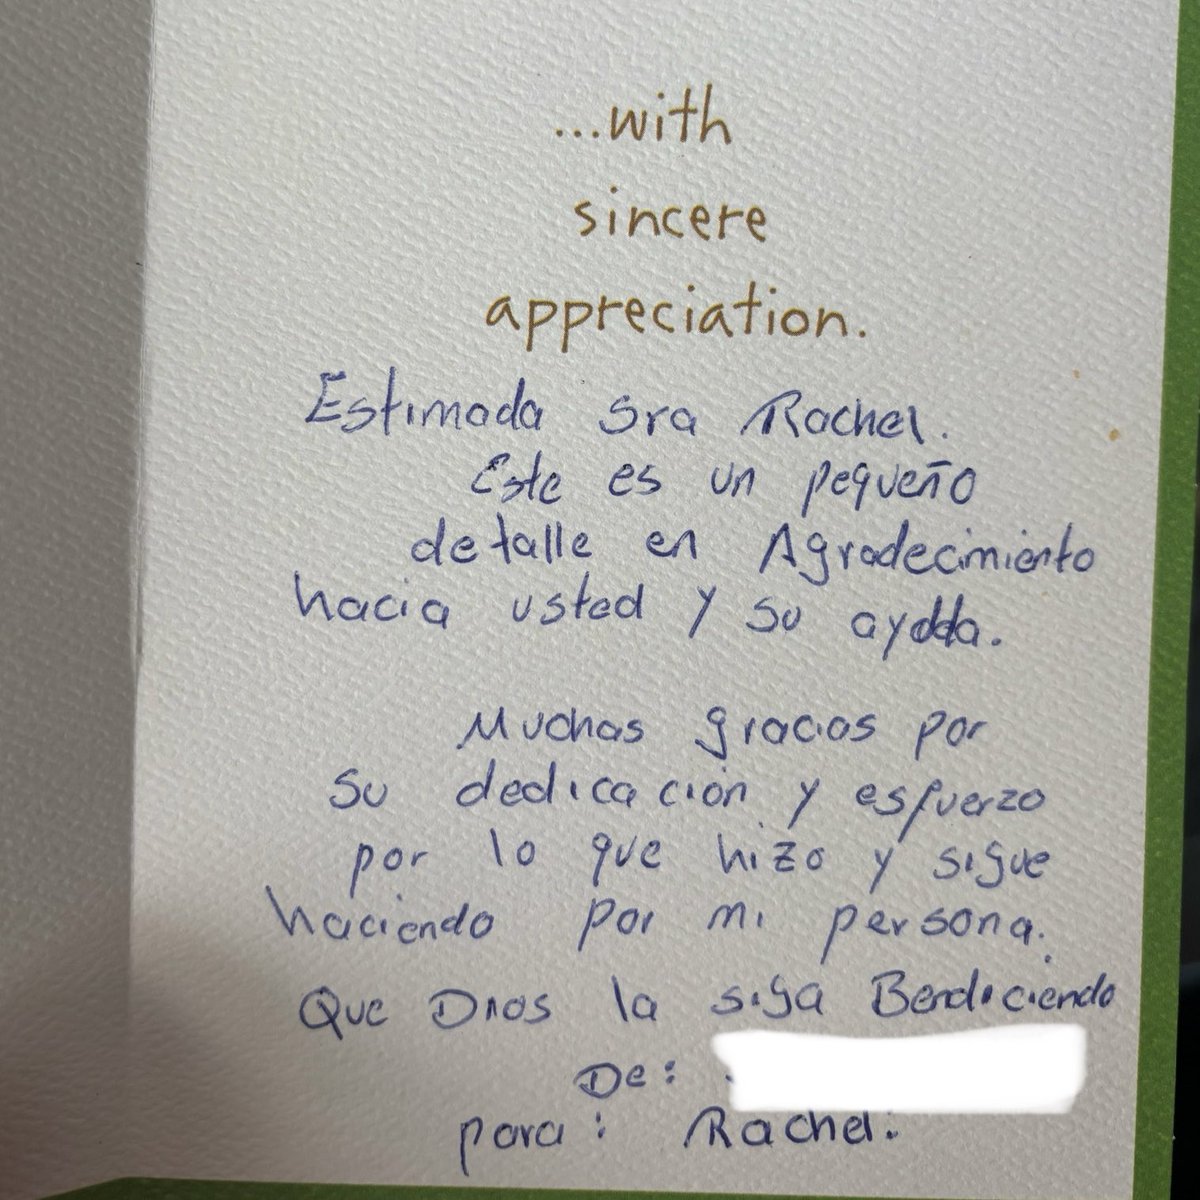 ...with
sincere
appreciation.
Estimada Sra Rachel.
Este es un pequeño
detalle en Agradecimiento
hacia usted y su ayuda.
Muchas gracias por
su dedicación y esfuerzo
por lo que hizo y sigue
haciendo por mi persona.
Que Dios la siga Bendiciendo
De:
para: Rachel.